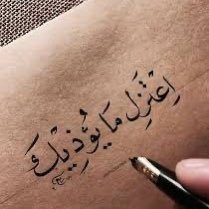 اِعْتَزِل مَا يُؤذِيكَ